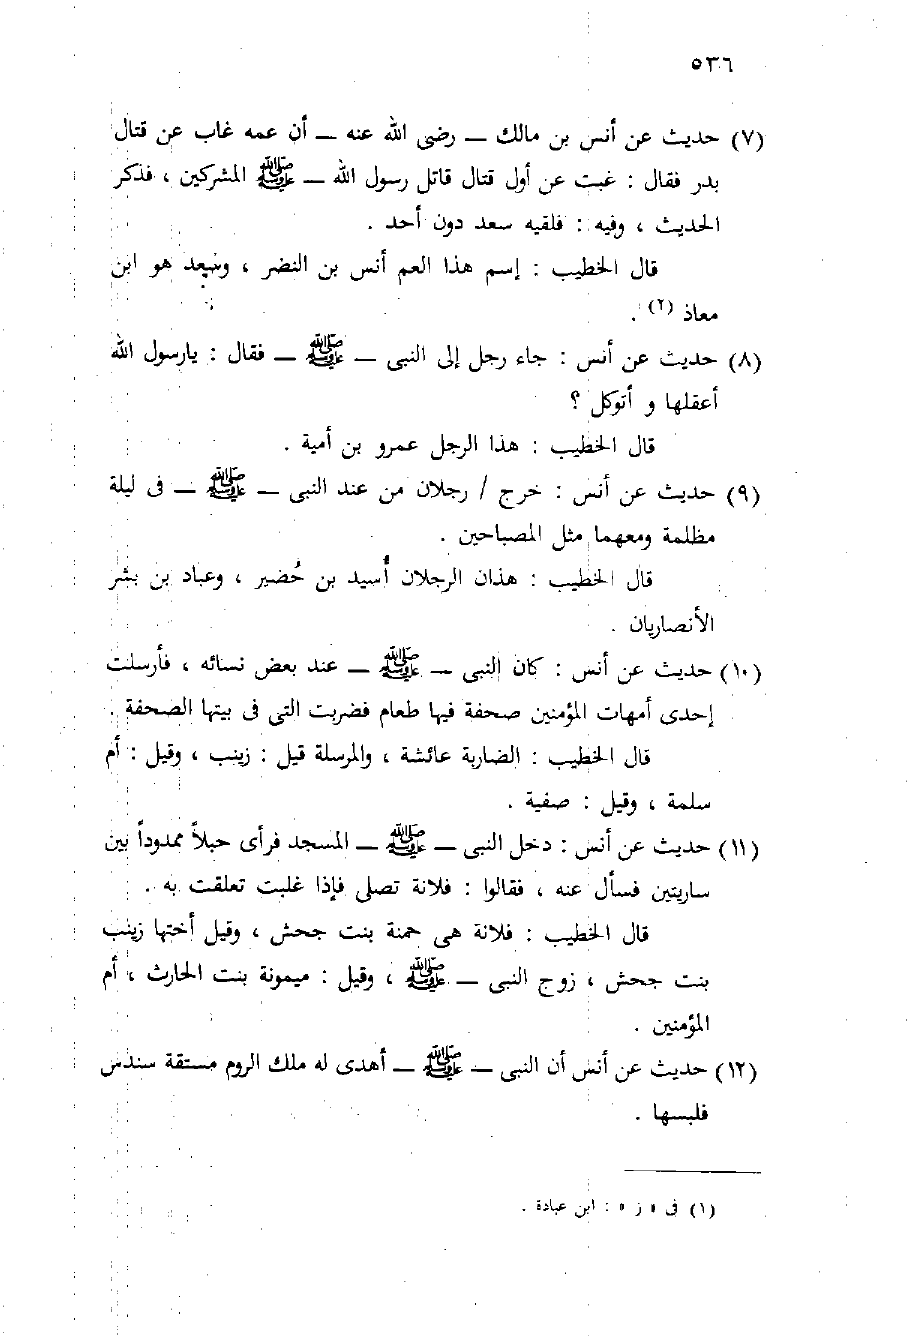 ٥٣٦
(٧) حديث عن أنس بن مالك ــ رضى الله عنه ــ أن عمه غاب عن قتال
بدر فقال : غبت عن أول قتال قاتل رسول الله ــ ﷺ المشركين ، فذكر
الحديث ، وفيه : فلقيه سعد دون أحد .
قال الخطيب : إسم هذا العم أنس بن النضر ، وسعد هو ابن
معاذ (٢) .
(٨) حديث عن أنس : جاء رجل إلى النبى ــ ﷺ ــ فقال : يارسول الله
أعقلها و أتوكل ؟
قال الخطيب : هذا الرجل عمرو بن أمية .
(٩) حديث عن أنس : خرج / رجلان من عند النبى ــ ﷺ ــ فى ليلة
مظلمة ومعهما مثل المصباحين .
قال الخطيب : هذان الرجلان أُسيد بن حُضير ، وعباد بن بشر
الأنصاريان .
(١٠) حديث عن أنس : كان النبى ــ ﷺ ــ عند بعض نسائه ، فأرسلت
إحدى أمهات المؤمنين صحفة فيها طعام فضربت التى فى بيتها الصحفة .
قال الخطيب : الضاربة عائشة ، والمرسلة قيل : زينب ، وقيل : أم
سلمة ، وقيل : صفية .
(١١) حديث عن أنس : دخل النبى ــ ﷺ ــ المسجد فرأى حبلاً ممدوداً بين
ساريتين فسأل عنه ، فقالوا : فلانة تصلى فإذا غلبت تعلقت به .
قال الخطيب : فلانة هى حمنة بنت جحش ، وقيل أختها زينب
بنت جحش ، زوج النبى ــ ﷺ ، وقيل : ميمونة بنت الحارث ، أم
المؤمنين .
(١٢) حديث عن أنس أن النبى ــ ﷺ ــ أهدى له ملك الروم مستقة سندس
فلبسها .
(١) فى « ز » : ابن عبادة .